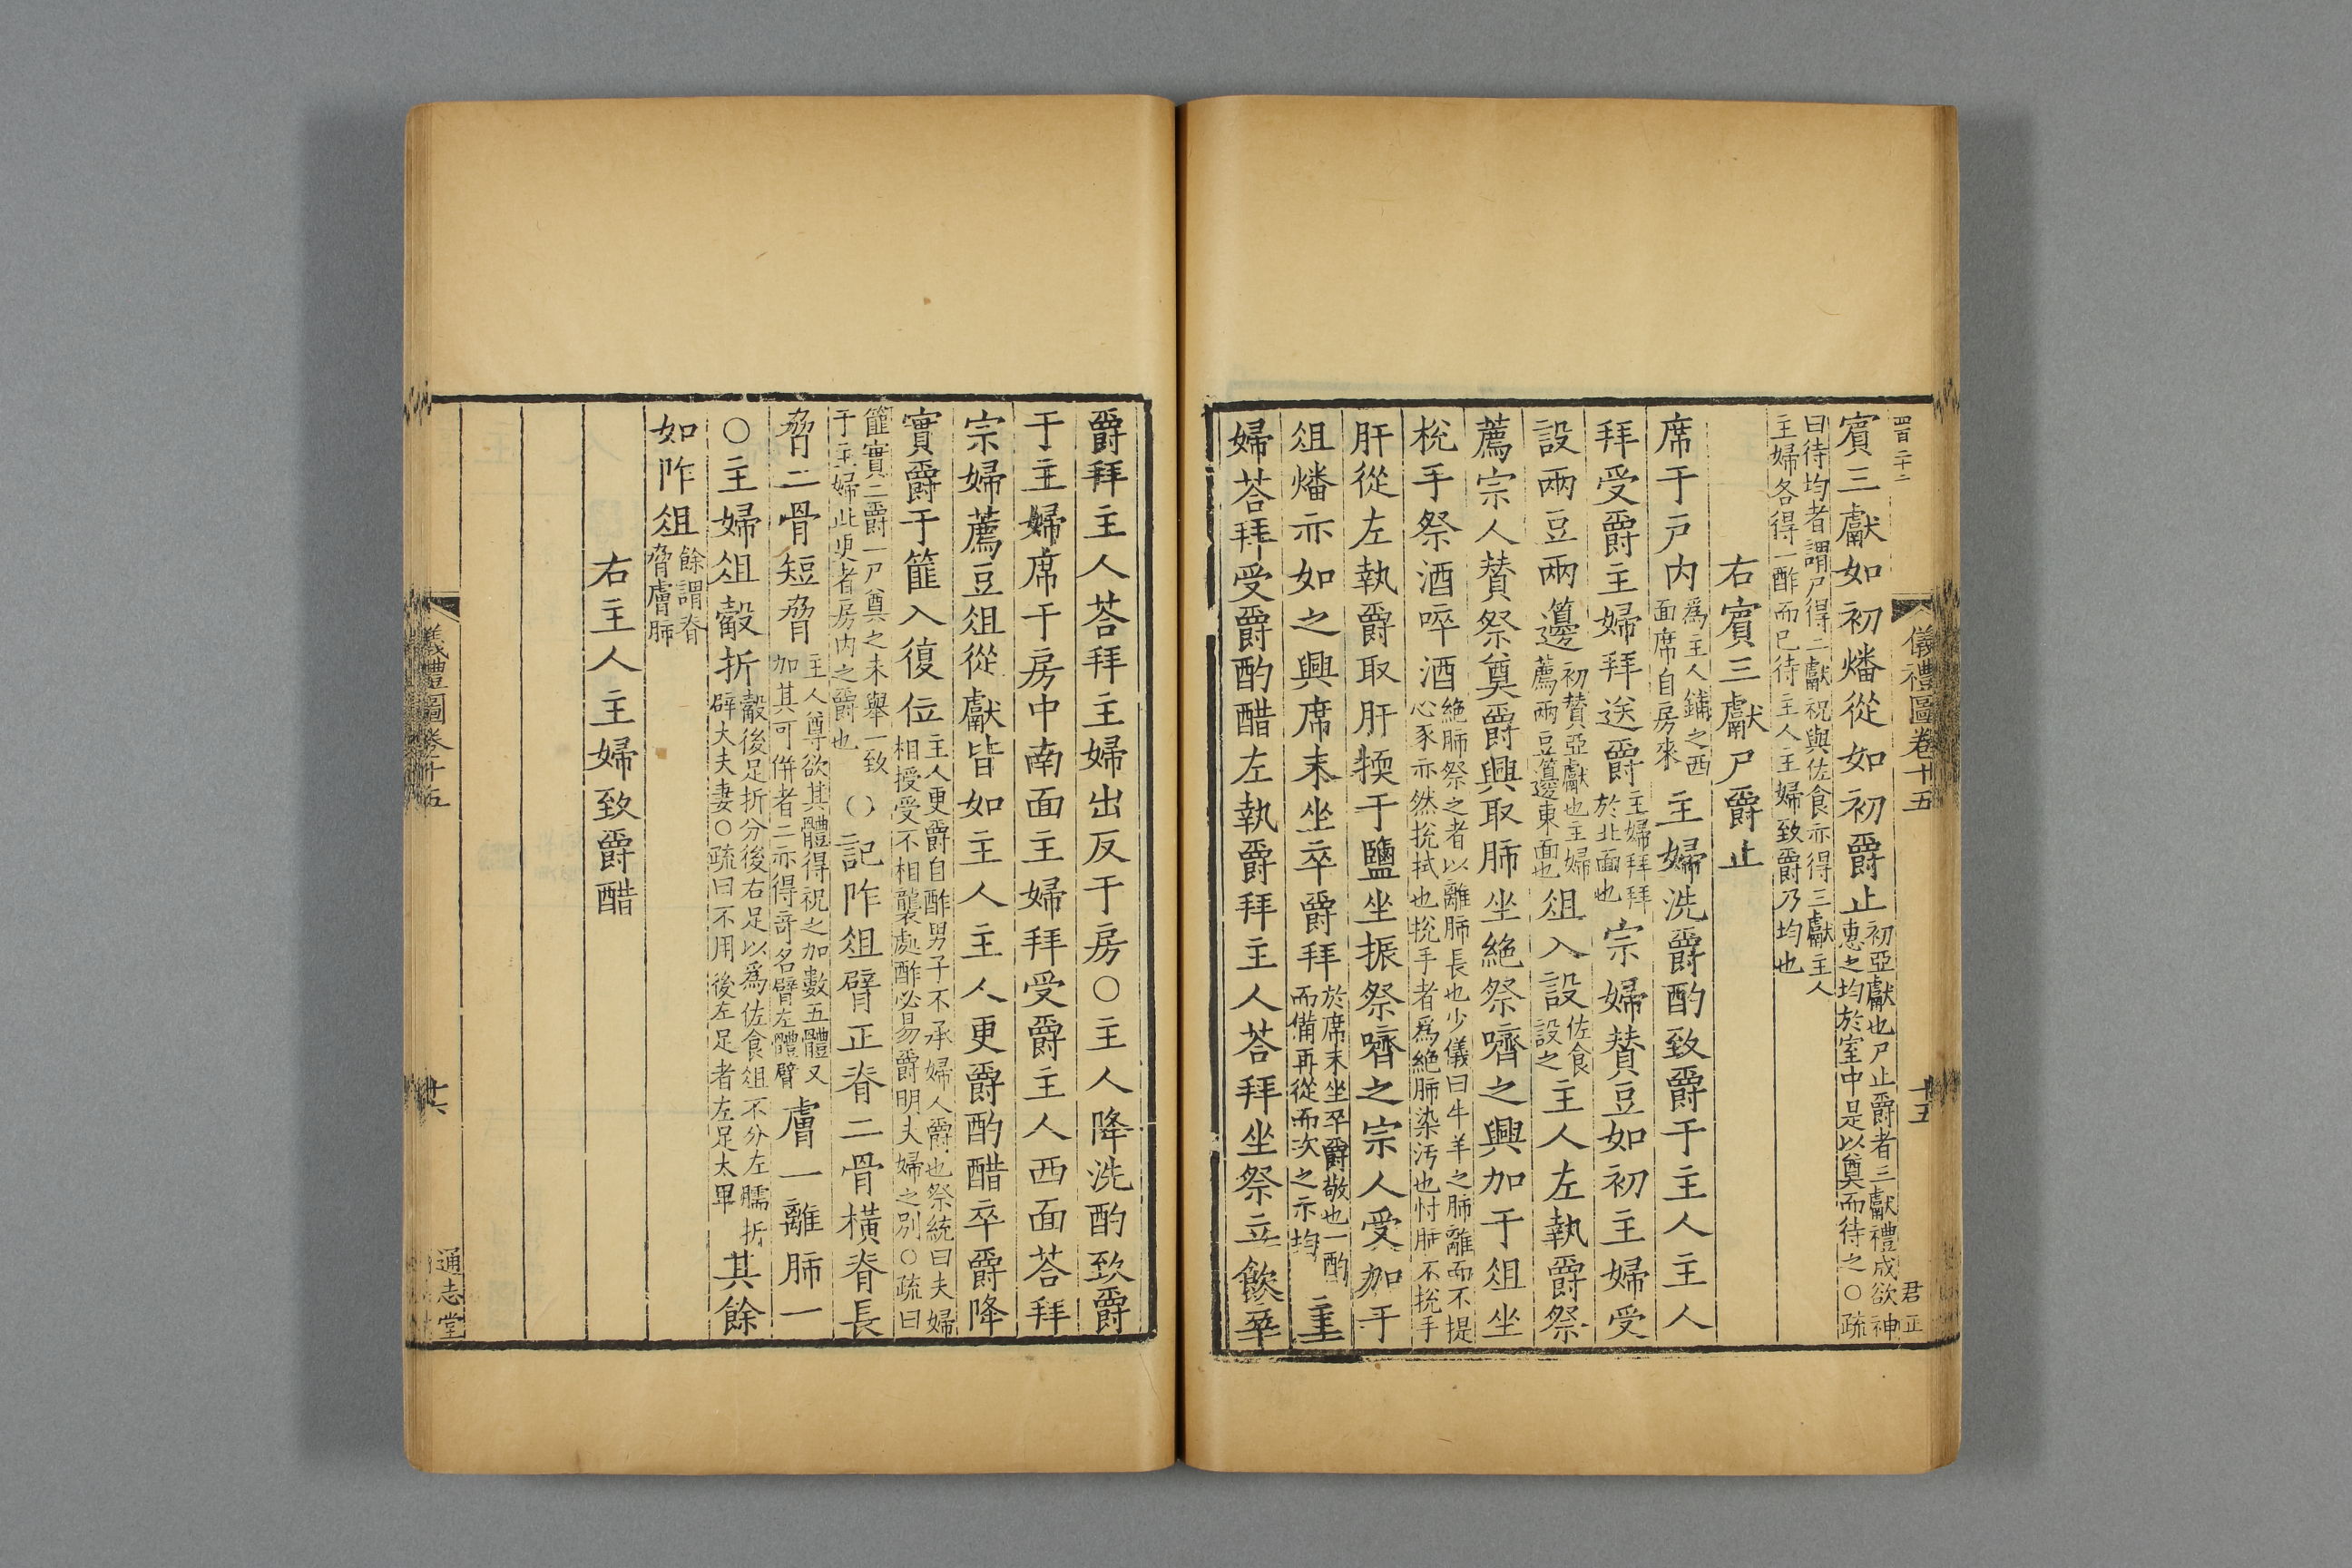 四百二十二
儀禮圖卷十五
十五
君正
賓三獻如初燔從如初爵止初亞獻也尸止爵者三獻禮成欲神惠之均於室中是以奠而待之○疏
曰待均者謂尸得二獻祝與佐食亦得三獻主人主婦各得一酢而已待主人主婦致爵乃均也
右賓三獻尸爵止
席于戶內為主人鋪之西面席自房來主婦洗爵酌致爵于主人主人
拜受爵主婦拜送爵主婦拜拜於北面也宗婦贊豆如初主婦受
設兩豆兩籩初贊亞獻也主婦薦兩豆籩東面也俎入設佐食設之主人左執爵祭
薦宗人贊祭奠爵興取肺坐絕祭嚌之興加于俎坐
梲手祭酒啐酒絕肺祭之者以離肺長也少儀曰牛羊之肺離而不提心豕亦然挩拭也挩手者為絕肺染汚也忖肺不挩手
肝從左執爵取肝㨎于鹽坐振祭嚌之宗人受加于
俎燔亦如之興席末坐卒爵拜於席末坐卒爵敬也一酌而備再從而次之示均主
婦荅拜受爵酌醋左執爵拜主人荅拜坐祭立飲卒
爵拜主人荅拜主婦出反于房○主人降洗酌致爵
于主婦席于房中南面主婦拜受爵主人西面荅拜
宗婦薦豆俎從獻皆如主人主人更爵酌醋卒爵降
實爵于篚入復位主人更爵自酢男子不承婦人爵也祭統曰夫婦相授受不相襲處酢必易爵明夫婦之別○疏曰
篚實二爵一尸奠之未舉一致于主婦此更者房內之爵也○記阼俎臂正脊二骨橫脊長
脅二骨短脅主人尊欲其體得祝之加數五體又加其可併者二亦得奇名臂左體臂膚一離肺一
○主婦俎觳折觳後足折分後右足以為佐食俎不分左臑折辟大夫妻○疏曰不用後左足者左足太卑其餘
如阼俎餘謂脊脅膚肺
右主人主婦致爵醋
儀禮圖卷十五
十六
通志堂